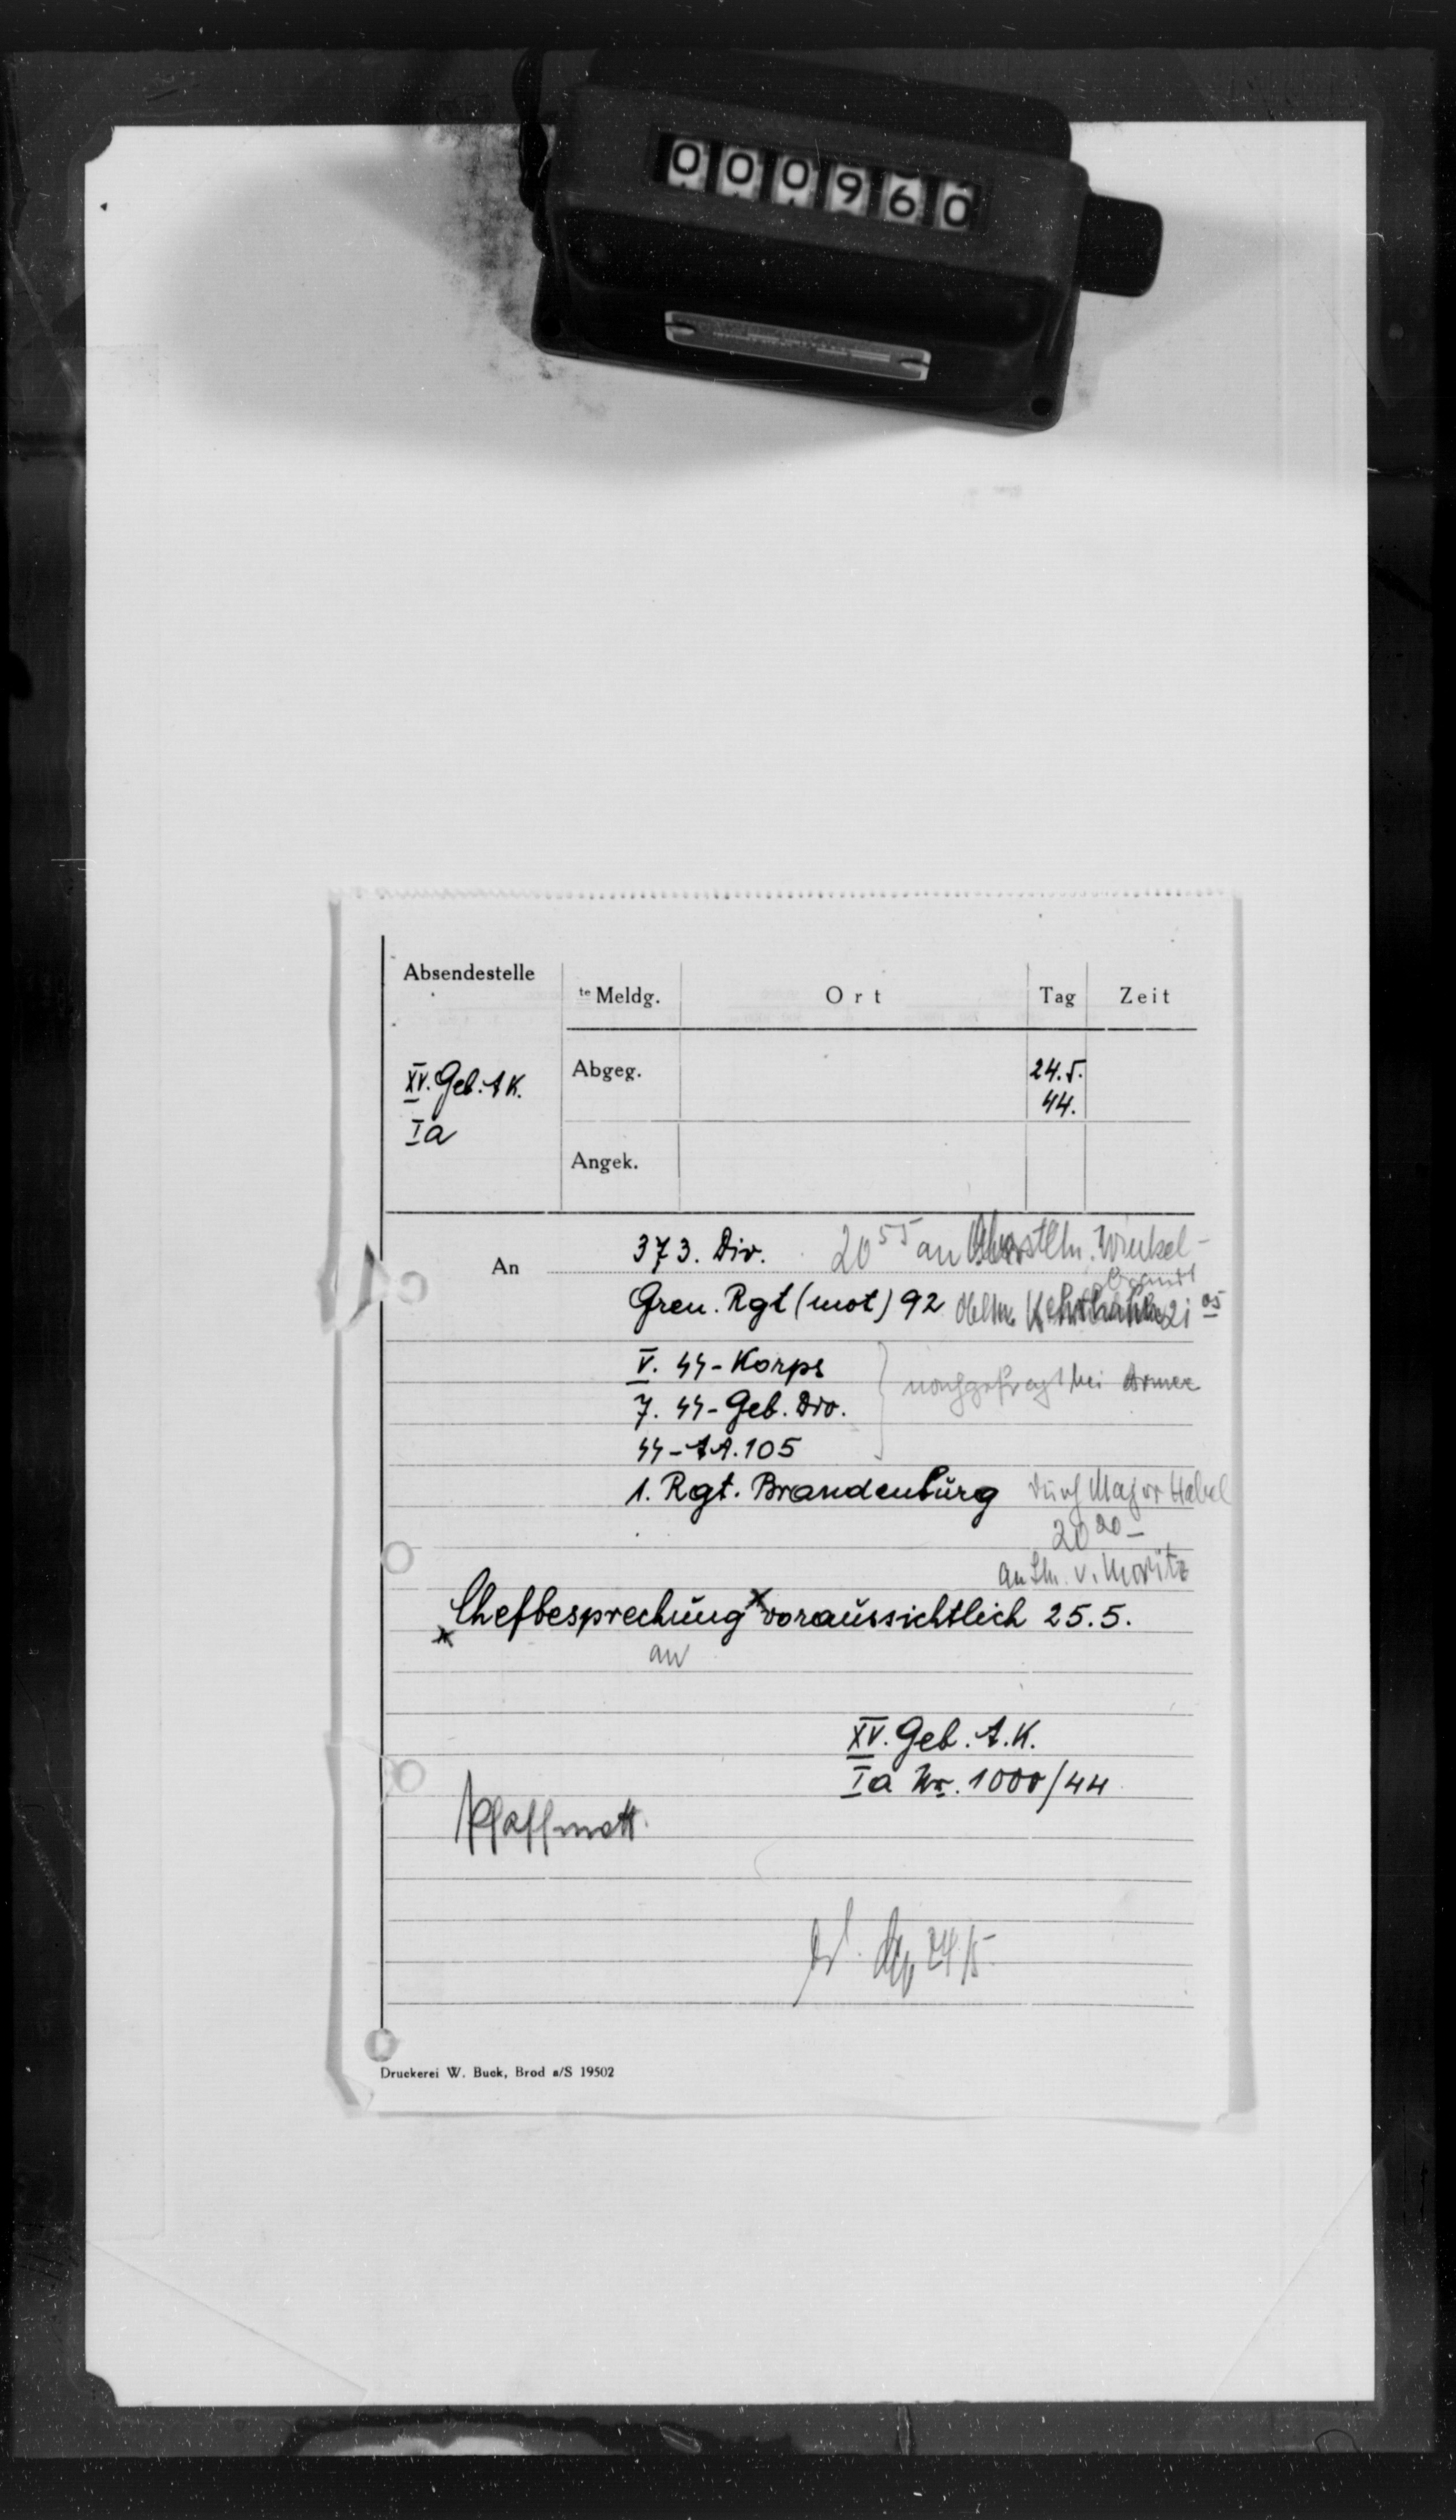 000960
Absendestelle
te Meldg.
Ort
Tag
Zeit
XV. Geb. A K.
Ia
Abgeg.
24.5.
44.
Angek.
An
373. Div.
20 55 an Oberstltn. Winkel-
brandt
Gren. Rgt (mot) 92
21 05
V. SS-Korps
7. SS-Geb. Div.
nachgefragt bei Armee
SS-A.A. 105
1. Rgt. Brandenburg
durch Major Habel
20 20 -
an Ltn. v. Moritz
x Chefbesprechung x voraussichtlich 25.5.
an
XV. Geb. A.K.
Ia Nr. 1000/44
24/5
Druckerei W. Buck, Brod a/S 19502